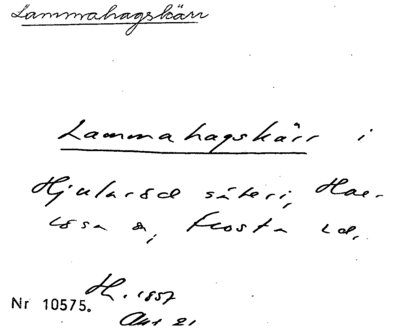 Lammahagskärr
Lammahagskärr i
Hjularöd säteri, Har-
lösa s, Frosta hd.
H. 1857
Nr 10575.
Akt 21